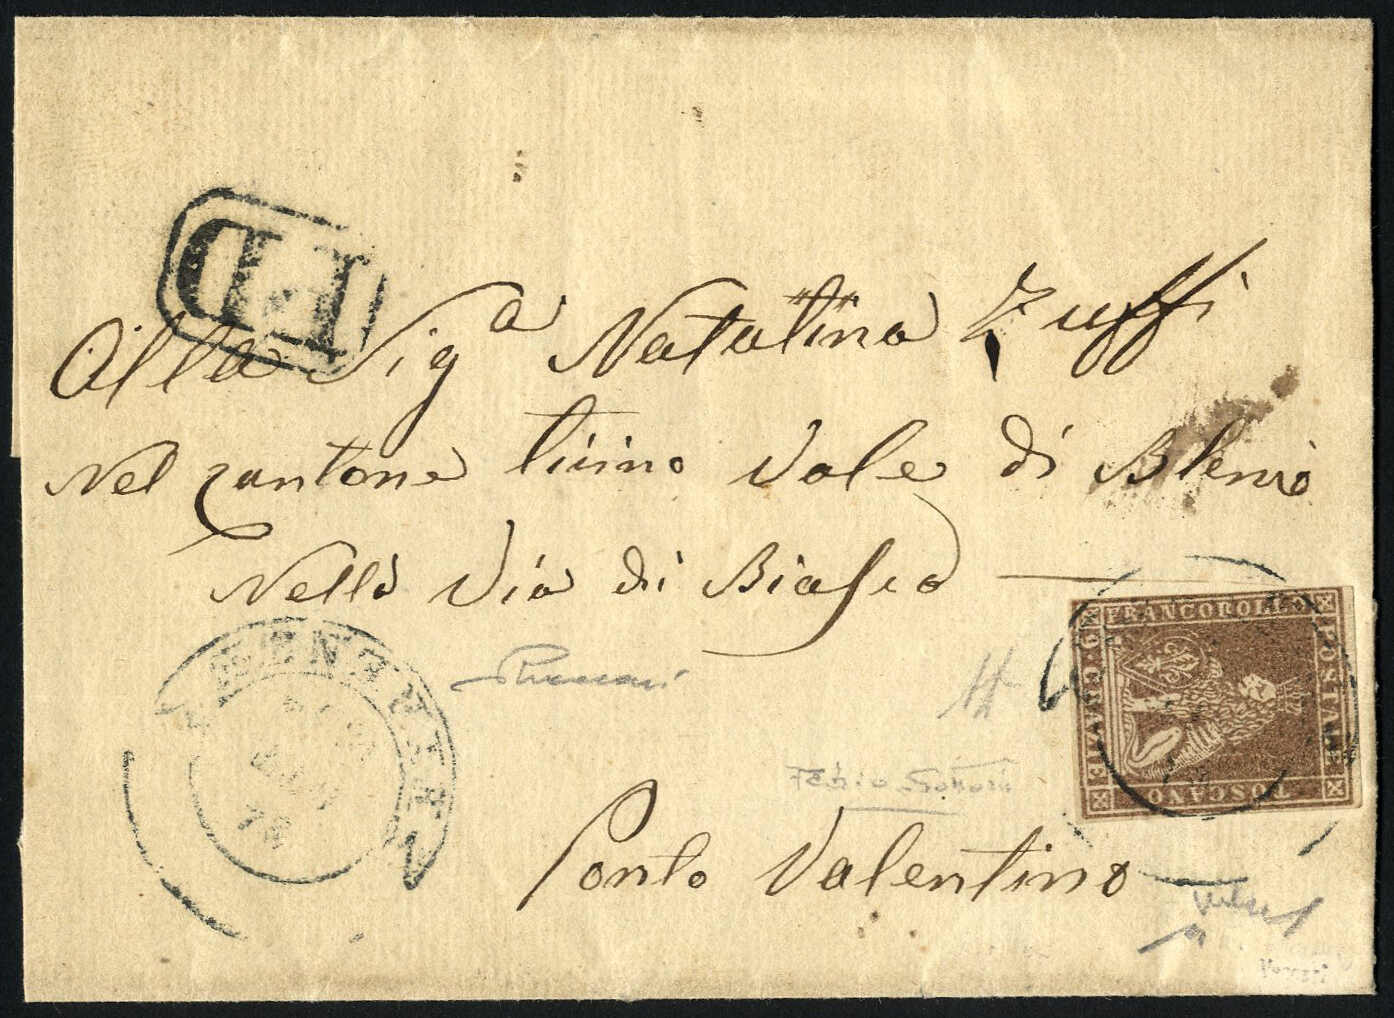 PD
Alla Sig.a Natalina Zuffi
Nel Cantone Ticino Vale di Blenio
Nella Via di Biasca
Ponto Valentino
FRANCOBOLLO
POSTALE
TOSCANO
FIRENZE
Fabio